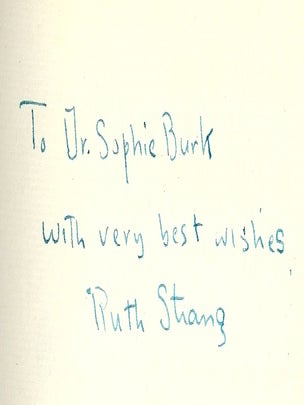 To Dr. Sophie Burk
with very best wishes
Ruth Strang